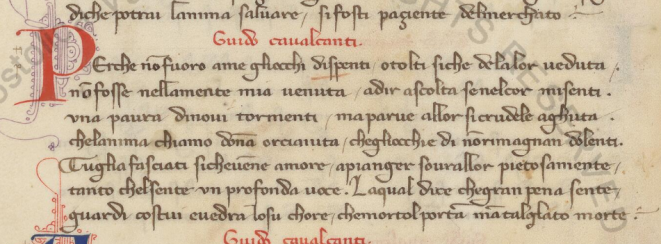 diche potrai lanima saluare / sifosti paziente delmerchato
Guido caualcanti.
PErche nōfuoro ame gliocchi dispenti / otolti siche delalor ueduta .
nōfosse nellamente mia uenuta / adir ascolta senelcor misenti .
vna paura dinoui tormenti / maparue allor sicrudele aghuta .
chelanima chiamo dōna orciaiuta / chegliocchie di nōrimagnan dolenti .
Tuglia fasciati sicheuēne amore / apianger sourallor pietosamente /
tanto chelsente vn profonda uoce . Laqual dice chegran pena sente /
guardi costui euedra losu chore / chemortol porta mātalglato morte
Guido caualcanti.